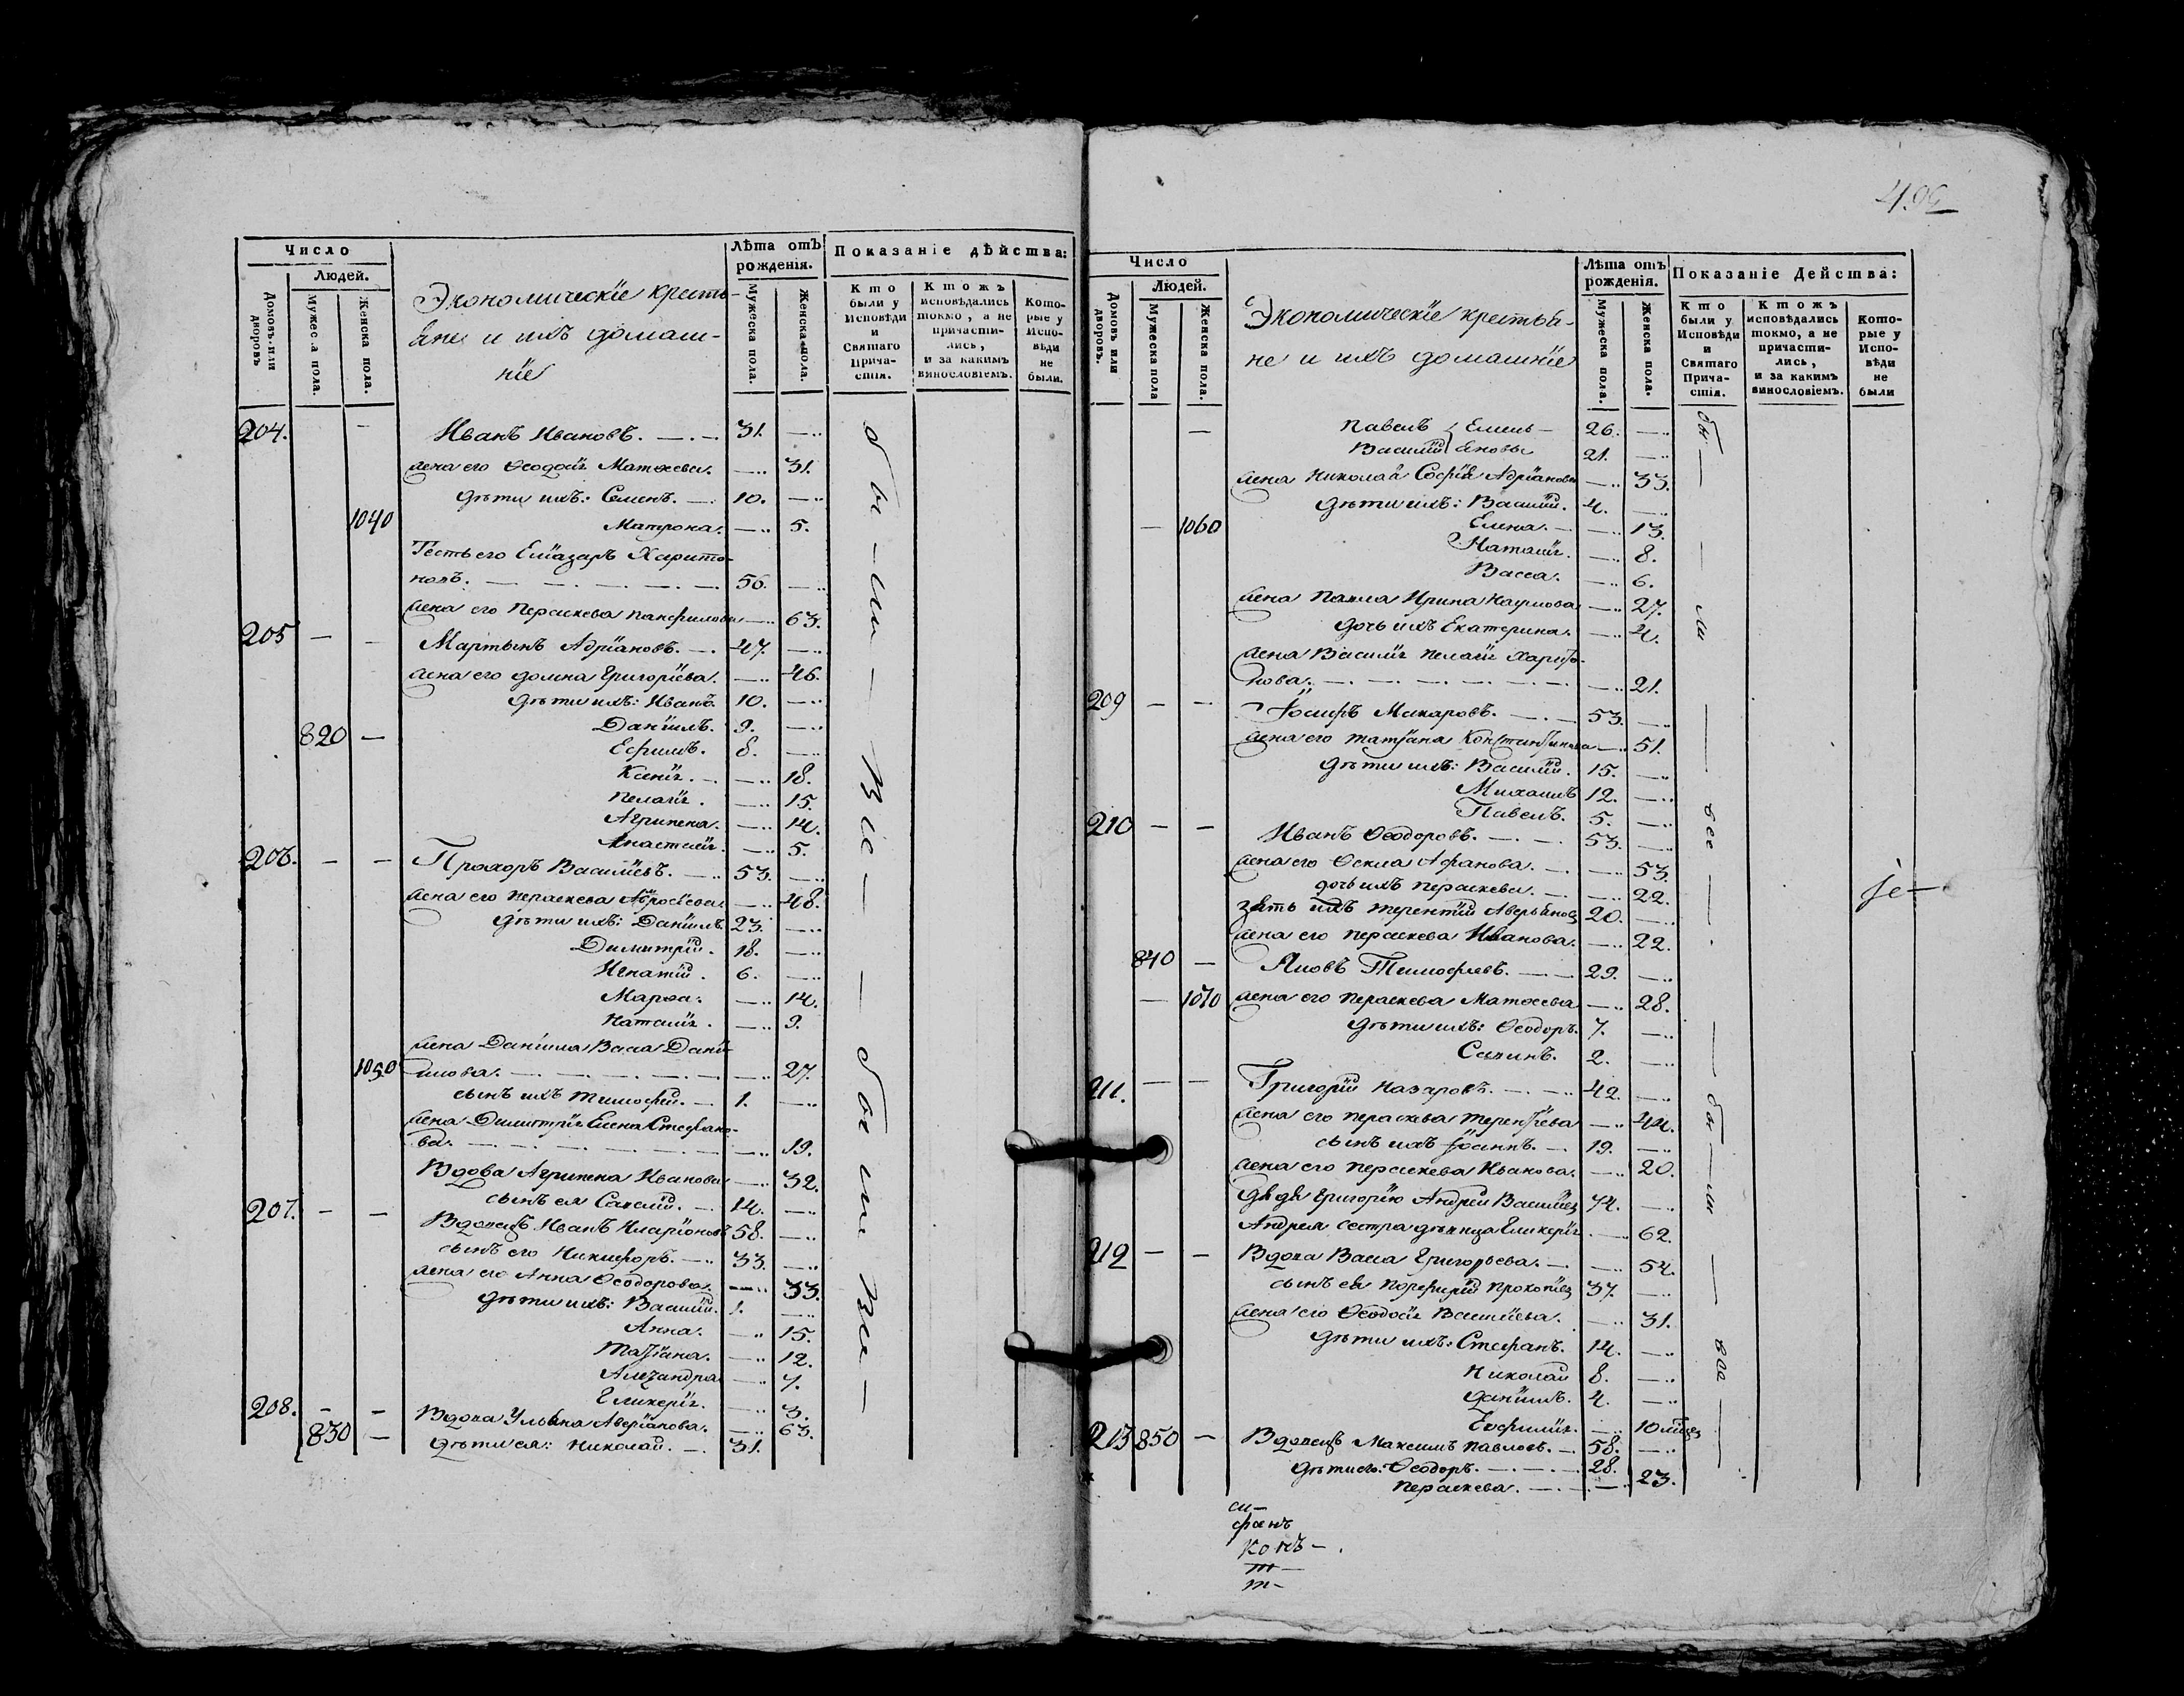 Число
Людей.
Домовъ или дворовъ
Мужеска пола.
Женска пола.
Экономическіе кресть-
яне и ихъ домаш-
ніе
Лѣта отъ
рожденія.
Мужеска пола.
Женска пола.
Показаніе дѣйства:
Кто были у Исповѣди и Святаго Прича- стія.
Ктожъ исповѣдались токмо, а не причасти- лись, и за какимъ винословіемъ.
Кото- рые у Испо- вѣди не были.
204. Иванъ Ивановъ. 31.
жена его Ѳеодосія Матѳеева. 31.
дѣти ихъ: Семенъ. 10.
1040 Матрона. 5.
Тесть его Еліазаръ Харито-
новъ. 56.
жена его Параскева Панфилова 63.
205 Мартынъ Адріановъ. 47.
жена его Домна Григоріева. 46.
дѣти ихъ: Иванъ 10.
Даніилъ. 9.
820 Ефимъ. 8.
Ксенія. 18.
Пелагія. 15.
Агрипена. 14.
Анастасія. 5.
206. Прохоръ Василіевъ. 53.
жена его Параскева Абросіева 48.
дѣти ихъ: Даніилъ 23.
Димитрій. 18.
Игнатій. 6.
Марѳа. 14.
Наталія. 9.
жена Даніила Васа Дани-
1050 лова. 27.
сынъ ихъ Тимофей. 1.
жена Димитрія Елена Стефано-
ва. 19.
Вдова Агрипена Иванова 32.
сынъ ея Савелій. 14.
207. Вдовецъ Иванъ Иларіоновъ 58.
сынъ его Никифоръ. 33.
жена его Анна Ѳеодорова. 33.
дѣти ихъ: Василій. 1.
Анна. 15.
Татіана. 12.
Александра 7.
Гликерія. 3.
208. Вдова Ульяна Аверіанова. 63.
830 дѣти ея: Николай. 31.
бы — ли — Всѣ — бы ли Всѣ —
495
Число
Людей.
Домовъ или дворовъ.
Мужеска пола
Женска пола.
Экономическіе крестья-
не и ихъ домашніе
Лѣта отъ
рожденія.
Мужеска пола.
Женска пола.
Показаніе Действа:
Кто были у Исповѣди и Святаго Прича- стія.
Ктожъ исповѣдались токмо, а не причасти- лись, и за какимъ винословіемъ.
Кото- рые у Испо- вѣди не были
Павелъ Емель- 26.
Василій яновы 21.
жена Николая Софія Адріанова 33.
дѣти ихъ: Василій. 4.
1060 Елена. 13.
Наталія. 8.
Васса. 6.
жена Павла Ирина Наумова 27.
дочь ихъ Екатерина. 4.
жена Василія Пелагія Харито-
нова. 21.
209 Іосифъ Макаровъ. 53.
жена его Татіана Константинова 51.
дѣти ихъ: Василій. 15.
Михаилъ 12.
Павелъ. 5.
210 Иванъ Ѳеодоровъ. 53.
жена его Ѳекла Афанова. 53.
дочь ихъ Параскева. 22.
зять ихъ Терентій Аверьянов 20.
жена его Параскева Иванова. 22.
840 Яковъ Тимофеевъ. 29.
1070 жена его Параскева Матѳеева 28.
дѣти ихъ: Ѳеодоръ. 7.
Савинъ. 2.
211. Григорій Назаровъ. 42.
жена его Параскева Терентіева 44.
сынъ ихъ Іоаннъ. 19.
жена его Параскева Иванова. 20.
дядя Григорію Андрей Василіев 74.
Андрея сестра дѣвица Гликерія 62.
212 Вдова Васса Григорьева. 54.
сынъ ея Порфирій Прокопіев 37.
жена его Ѳеодосія Василіева. 31.
дѣти ихъ: Стефанъ. 14.
Николай 8.
Даніилъ. 4.
Евфимія. 10 мѣсяц
213 850 Вдовецъ Максимъ Павловъ. 58.
дѣти его: Ѳеодоръ. 28.
Параскева. 23.
бы — ли — все — бы — ли — все —
си-
фанъ
конъ-
т-
т-